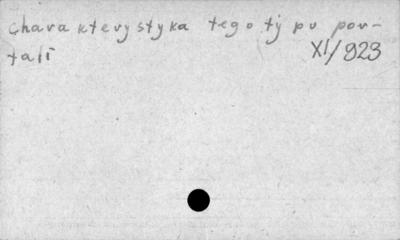 Charakterystyka tego typu por-
tali XI/923